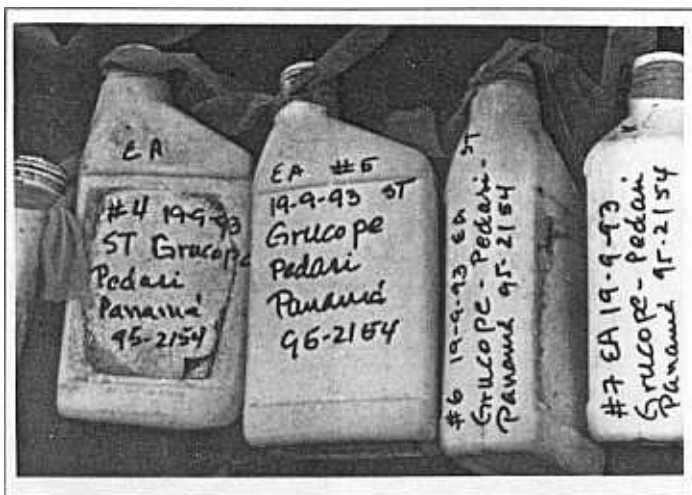 EA
#4 19-9-93
ST Grucope
Pedasi
Panamá
95-2154
EA #5
19-9-93 ST
Grucope
Pedasi
Panamá
95-2154
#6 19-9-93 EA
Grucope - Pedasi - ST
Panamá 95-2154
#7 EA 19-9-93
Grucope - Pedasi
Panamá 95-2154